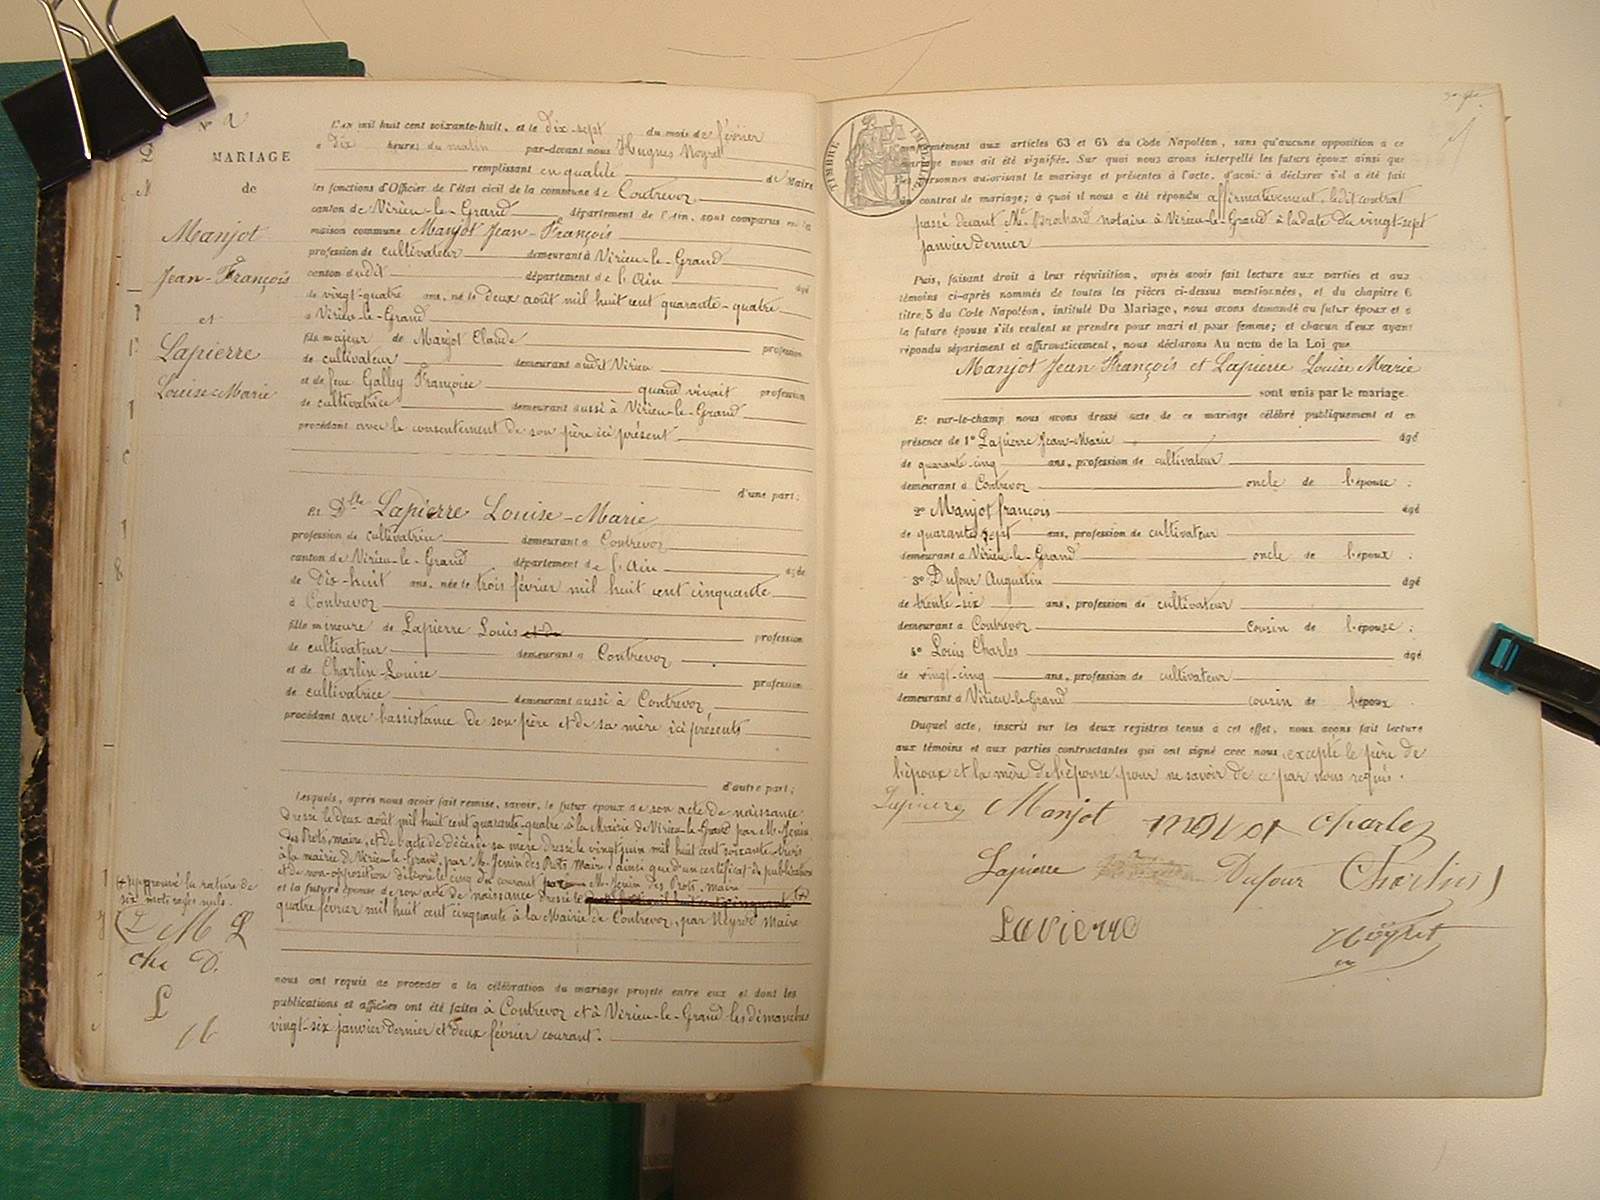 N° 2
MARIAGE
de
Manjot
Jean-François
et
Lapierre
Louise-Marie
L'an mil huit cent soixante-huit, et le dix-sept du mois de février
à dix heures du matin par-devant nous Hugues Neyret
remplissant en qualité de Maire
les fonctions d'Officier de l'état civil de la commune de Contrevoz
canton de Virieu-le-Grand département de l'Ain, sont comparus en la
maison commune Manjot Jean-François
profession de cultivateur demeurant à Virieu-le-Grand
canton dudit département de l'Ain âgé
de vingt-quatre ans, né le deux août mil huit cent quarante-quatre
à Virieu-le-Grand
fils majeur de Manjot Claude profession
de cultivateur demeurant audit Virieu
et de feue Gallay Françoise quand vivait profession
de cultivatrice demeurant aussi à Virieu-le-Grand
procédant avec le consentement de son père ici présent
d'une part;
Et Dlle Lapierre Louise-Marie
profession de cultivatrice demeurant à Contrevoz
canton de Virieu-le-Grand département de l'Ain âgée
de dix-huit ans, née le trois février mil huit cent cinquante
à Contrevoz
fille mineure de Lapierre Louis et de profession
de cultivateur demeurant à Contrevoz
et de Charlin-Louise profession
de cultivatrice demeurant aussi à Contrevoz
procédant avec l'assistance de son père et de sa mère ici présents
d'autre part;
Lesquels, après nous avoir fait remise, savoir, le futur époux de son acte de naissance
dressé le deux août mil huit cent quarante-quatre à la Mairie de Virieu-le-Grand par M. Jenin
des Prots, maire, et de l'acte de décès de sa mère dressé le vingt juin mil huit cent soixante-trois
à la mairie de Virieu-le-Grand, par M. Jenin des Prots Maire, ainsi que d'un certificat de publication
et de non-opposition délivré le cinq du courant par M. Jenin des Prots, maire
et la future épouse de son acte de naissance dressé le
quatre février mil huit cent cinquante à la Mairie de Contrevoz, par Neyret Maire
Approuvé la rature de
six mots rayés nuls.
L M L
cha D.
L
nous ont requis de procéder à la célébration du mariage projeté entre eux et dont les
publications et affiches ont été faites à Contrevoz et à Virieu-le-Grand les dimanches
vingt-six janvier dernier et deux février courant.
TIMBRE IMPÉRIAL
conformément aux articles 63 et 64 du Code Napoléon, sans qu'aucune opposition à ce
mariage nous ait été signifiée. Sur quoi nous avons interpellé les futurs époux ainsi que
les personnes autorisant le mariage et présentes à l'acte, d'avoir à déclarer s'il a été fait
un contrat de mariage; à quoi il nous a été répondu affirmativement, ledit contrat
passé devant Me Brochard notaire à Virieu-le-Grand à la date du vingt-sept
janvier dernier
Puis, faisant droit à leur réquisition, après avoir fait lecture aux parties et aux
témoins ci-après nommés de toutes les pièces ci-dessus mentionnées, et du chapitre 6
titre 5 du Code Napoléon, intitulé Du Mariage, nous avons demandé au futur époux et à
la future épouse s'ils veulent se prendre pour mari et pour femme; et chacun d'eux ayant
répondu séparément et affirmativement, nous déclarons Au nom de la Loi que
Manjot Jean François et Lapierre Louise Marie
sont unis par le mariage.
Et sur-le-champ nous avons dressé acte de ce mariage célébré publiquement et en
présence de 1° Lapierre Jean-Marie âgé
de quarante-cinq ans, profession de cultivateur
demeurant à Contrevoz oncle de l'épouse;
2° Manjot françois âgé
de quarante sept ans, profession de cultivateur
demeurant à Virieu-le-Grand oncle de l'époux;
3° Dufour Augustin âgé
de trente-six ans, profession de cultivateur
demeurant à Contrevoz cousin de l'épouse;
4° Louis Charles âgé
de vingt-cinq ans, profession de cultivateur
demeurant à Virieu-le-Grand cousin de l'époux
Duquel acte, inscrit sur les deux registres tenus à cet effet, nous avons fait lecture
aux témoins et aux parties contractantes qui ont signé avec nous, excepté le père de
l'époux et la mère de l'épouse pour ne savoir de ce par nous requis.
Lapierre Manjot Charles
Lapierre Dufour Charlin
Lapierre Neyret